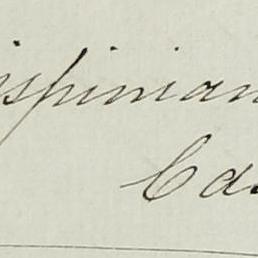 ispinian
Ca